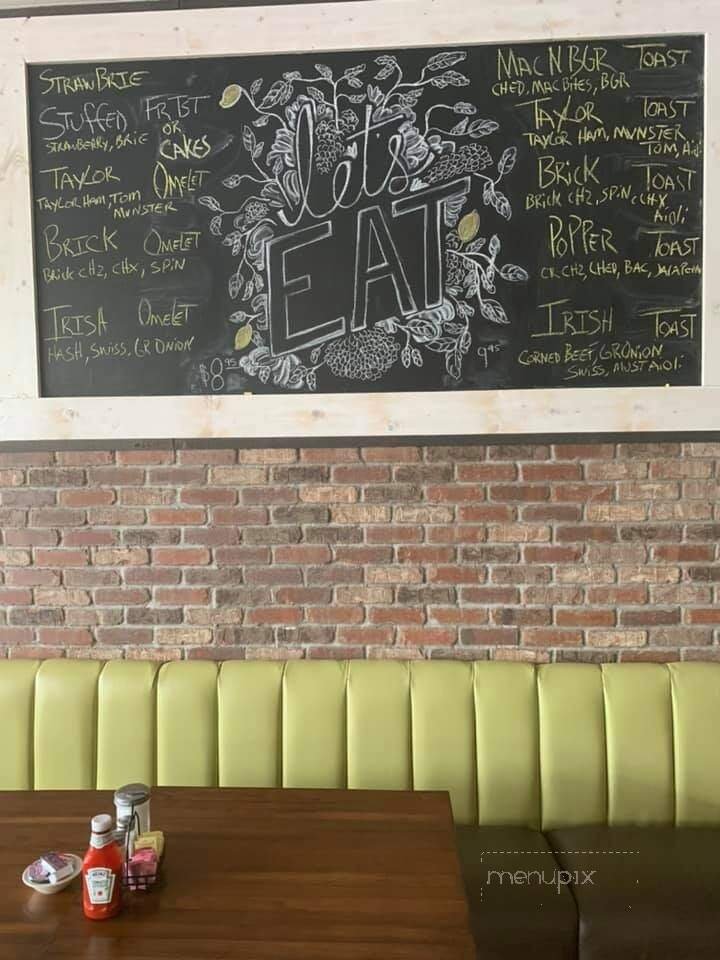 STRAWBRIE
STUFFED FR BT
OR
STRAWBERRY, BRIE CAKES
TAYLOR OMELET
TAYLOR HAM, TOM
MUNSTER
BRICK OMELET
BRICK CHZ, CHX, SPIN
IRISH OMELET
HASH, SWISS, GR ONION
$8.95
let's
EAT
9.95
MAC N BGR TOAST
CHED, MAC BITES, BGR
TAYLOR TOAST
TAYLOR HAM, MUNSTER
TOM, Aioli
BRICK TOAST
BRICK CHZ, SPIN, CHX,
Aioli
POPPER TOAST
CR CHZ, CHED, BAC, JALAPEÑO
IRISH TOAST
CORNED BEEF, GR ONION
SWISS, MUST AIOLI
HEINZ
menupix